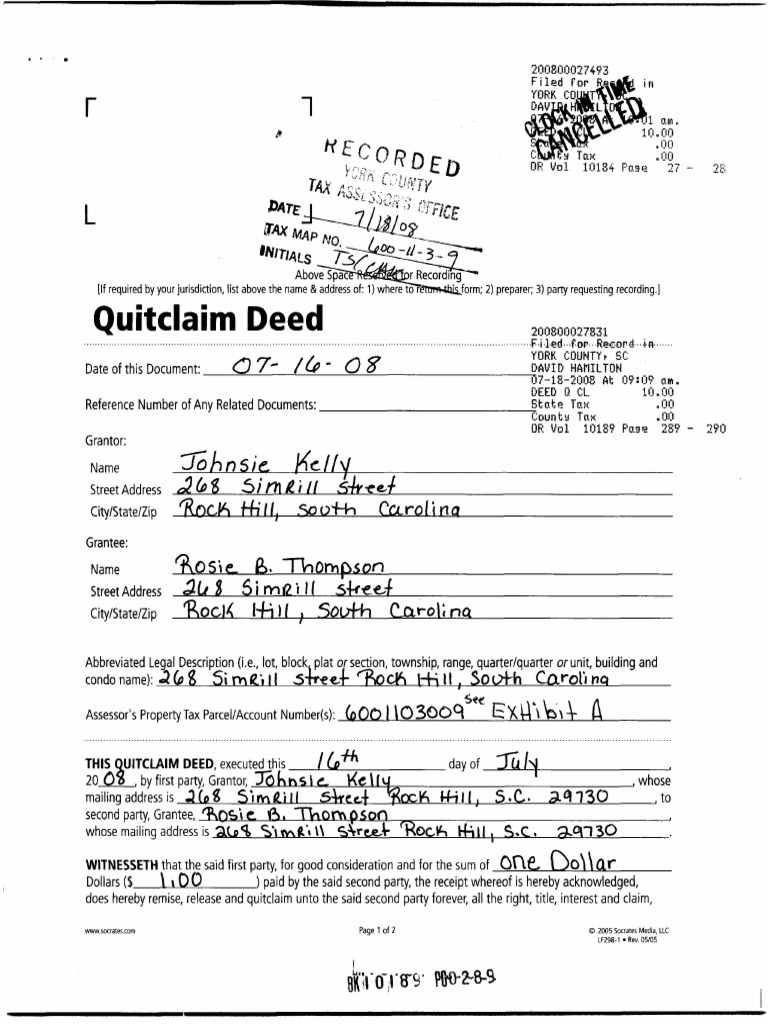 200800027493
Filed for Record in
YORK COUNTY, SC
DAVID HAMILTON
CLOCK IN TIME
CANCELLED
10.00
.00
County Tax .00
OR Vol 10184 Page 27 - 28
RECORDED
YORK COUNTY
TAX ASSESSOR'S OFFICE
DATE 7/18/08
TAX MAP NO. 600-11-3-9
INITIALS
Above Space Reserved for Recording
[If required by your jurisdiction, list above the name & address of: 1) where to return this form; 2) preparer; 3) party requesting recording.]
Quitclaim Deed
200800027831
Filed for Record in
YORK COUNTY, SC
DAVID HAMILTON
07-18-2008 At 09:09 am.
DEED Q CL 10.00
State Tax .00
County Tax .00
OR Vol 10189 Page 289 - 290
Date of this Document: 07-16-08
Reference Number of Any Related Documents:
Grantor:
Name Johnsie Kelly
Street Address 268 SimRill Street
City/State/Zip Rock Hill, South Carolina
Grantee:
Name Rosie B. Thompson
Street Address 268 Simrill street
City/State/Zip Rock Hill, South Carolina
Abbreviated Legal Description (i.e., lot, block, plat or section, township, range, quarter/quarter or unit, building and
condo name): 268 SimRill street Rock Hill, South Carolina
Assessor's Property Tax Parcel/Account Number(s): 6001103009 see Exhibit A
THIS QUITCLAIM DEED, executed this 16th day of July,
2008, by first party, Grantor, Johnsie Kelly, whose
mailing address is 268 SimRill Street Rock Hill, S.C. 29730, to
second party, Grantee, Rosie B. Thompson,
whose mailing address is 268 SimRill Street Rock Hill, S.C. 29730.
WITNESSETH that the said first party, for good consideration and for the sum of one Dollar
Dollars ($ 1.00 ) paid by the said second party, the receipt whereof is hereby acknowledged,
does hereby remise, release and quitclaim unto the said second party forever, all the right, title, interest and claim,
www.socrates.com
Page 1 of 2
© 2005 Socrates Media, LLC
LF298-1 • Rev. 05/05
BK10189 PG0289